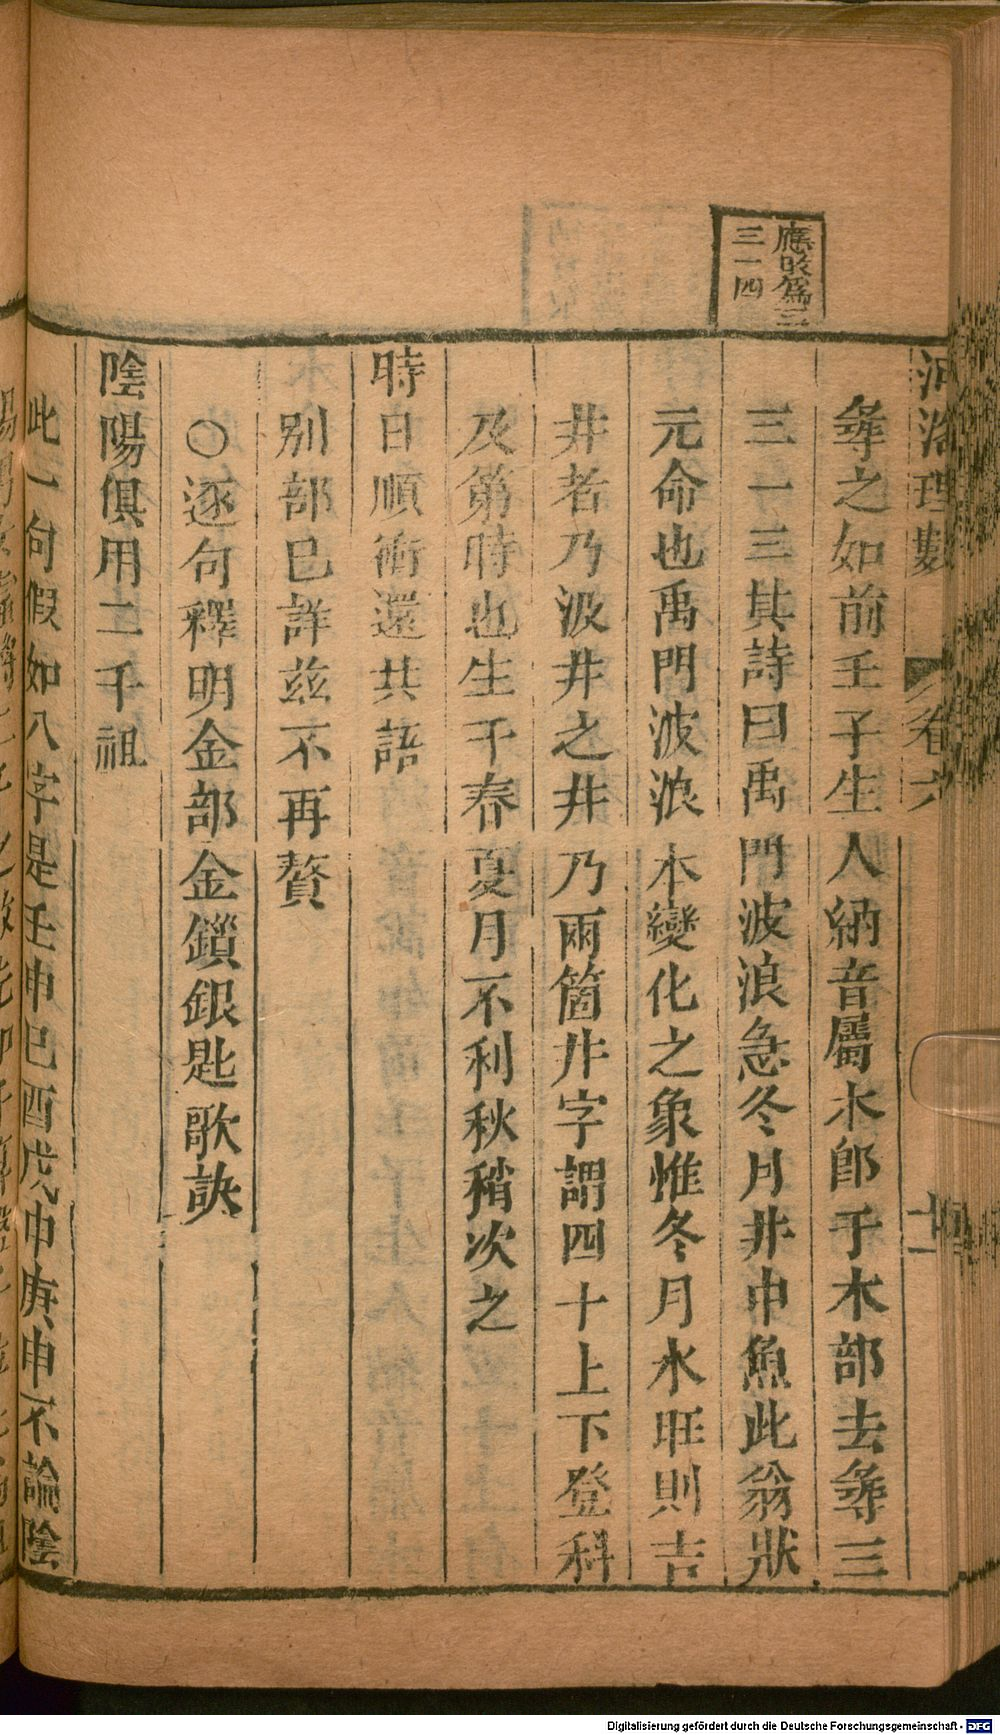 河洛理數
卷六
應改爲三
三一四
尋之如前壬子生人納音屬木郎于木部去尋三
三一三其詩曰禹門波浪急冬月井中魚此翁狀
元命也禹門波浪本變化之象惟冬月水旺則吉
井者乃汲井之井乃兩箇井字謂四十上下登科
及第時也生于春夏月不利秋稍次之
時日順術還共語
別部已詳茲不再贅
○逐句釋明金部金鎖銀匙歌訣
陰陽俱用二千祖
此一句假如八字是壬申巳酉戊申庚申不論陰
Digitalisierung gefördert durch die Deutsche Forschungsgemeinschaft - DFG